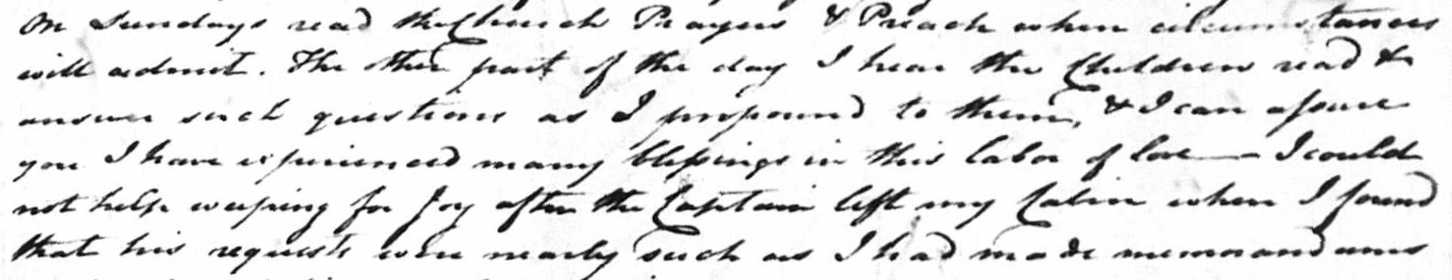 On Sundays read the Church Prayers & Preach when circumstances
will admit. The other part of the day I hear the Children read &
answer such questions as I propound to them, & I can assure
you I have experienced many blessings in this labor of love — I could
not help weeping for Joy after the Captain left my Cabin when I found
that his requests were nearly such as I had made memorandums